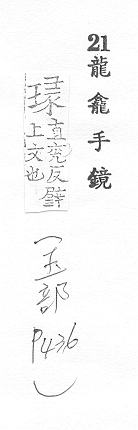 21 龍龕手鏡
瑑直兖反璧
上文也
（玉部 P436）